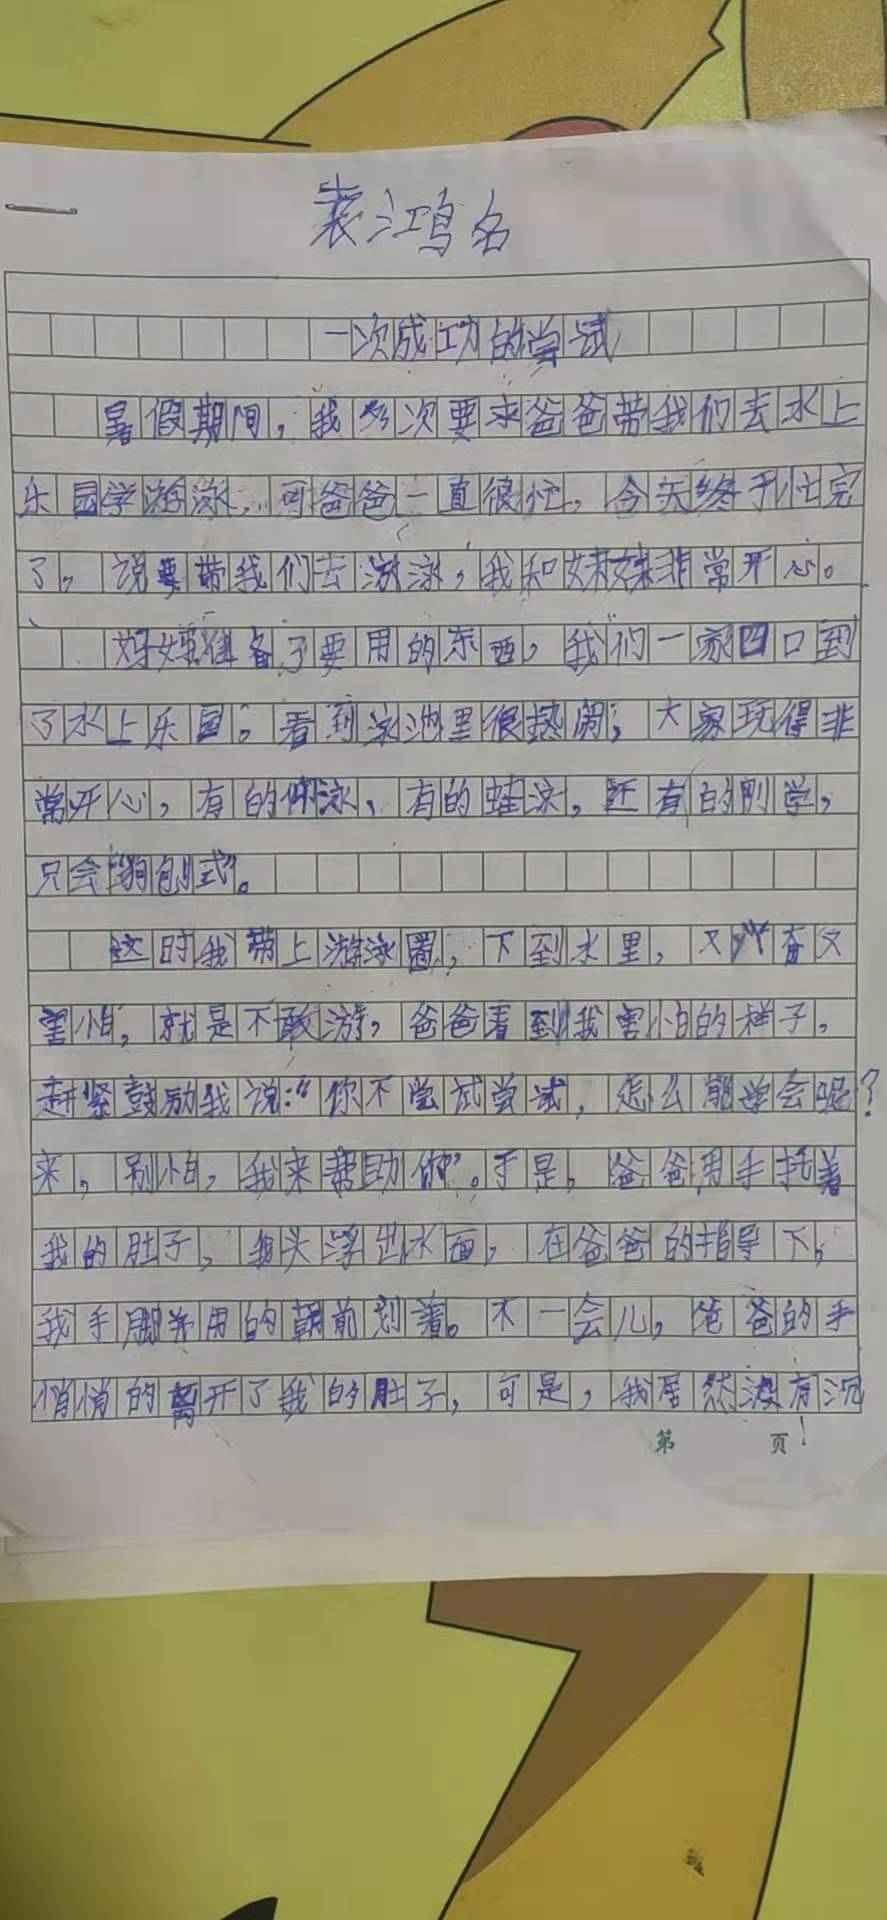 袁江鸣
一次成功的尝试
暑假期间，我多次要求爸爸带我们去水上
乐园学游泳，可爸爸一直很忙，今天终于忙完
了，说要带我们去游泳，我和妹妹非常开心。
妈妈准备了要用的东西，我们一家四口到
了水上乐园。看到泳池里很热闹，大家玩得非
常开心，有的仰泳、有的蛙泳，还有的刚学，
只会“狗刨式”。
这时我带上游泳圈，下到水里，又兴奋又
害怕，就是不敢游，爸爸看到我害怕的样子，
赶紧鼓励我说：“你不尝试尝试，怎么能学会呢？
来，别怕，我来帮助你”。于是，爸爸用手托着
我的肚子，我头浮出水面，在爸爸的指导下，
我手脚并用的朝前划着。不一会儿，爸爸的手
悄悄的离开了我的肚子，可是，我居然没有沉
第 页